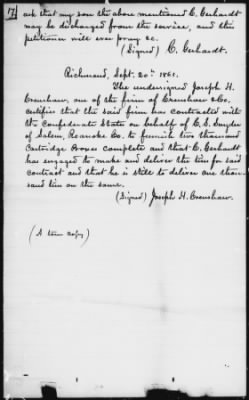 17.
ask that my son the above mentioned C. Gerhardt
may be discharged from the service, and this
petitioner will ever pray &c.
(Signed) C. Gerhardt.
Richmond, Sept. 20th 1861.
The undersigned Joseph H.
Crenshaw, one of the firm of Crenshaw & Co.
certifies that the said firm has contracted with
the Confederate State on behalf of C. E. Snyder
of Salem, Roanoke Co. to furnish five thousand
Cartridge Boxes complete and that C. Gerhardt
has engaged to make and deliver the tin for said
contract and that he is still to deliver one thou-
sand tin on the same.
(Signed) Joseph H. Crenshaw.
(A true copy)